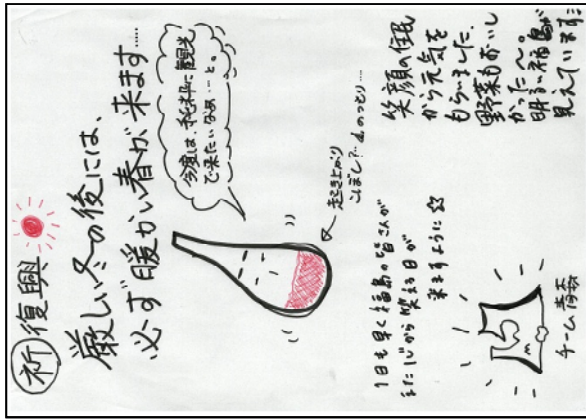 祈 復興
厳しい冬の後には、
必ず暖かい春が来ます……
今度は、純粋に観光
で来たいなぁ…と。
起き上がり
こぼし?…のつもり…
1日も早く福島の皆さんが
また心から笑える日が
来ますように☆
笑顔の住民
から元気を
もらいました。
野菜もおいし
かった〜。
明るい福島が
見えています
チーム青森